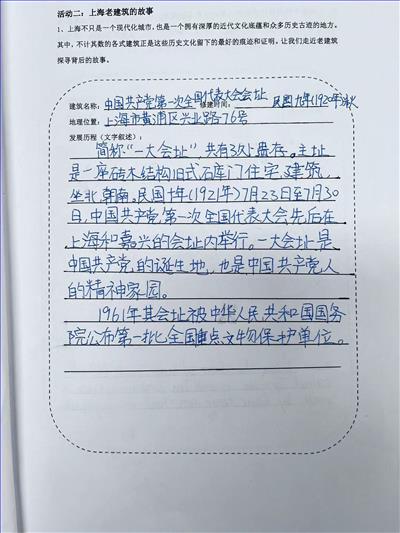 活动二：上海老建筑的故事
1、上海不只是一个现代化城市，也是一个拥有深厚的近代文化底蕴和众多历史古迹的地方。
其中，不计其数的各式建筑正是这些历史文化留下的最好的痕迹和证明。让我们走近老建筑
探寻背后的故事。
建筑名称：中国共产党第一次全国代表大会会址 修建时间：民国九年(1920年)秋
地理位置：上海市黄浦区兴业路76号
发展历程（文字叙述）：
简称“一大会址”，共有3处遗存。主址
是一座砖木结构旧式石库门住宅建筑，
坐北朝南。民国十年(1921年)7月23日至7月30
日，中国共产党第一次全国代表大会先后在
上海和嘉兴的会址内举行。一大会址是
中国共产党的诞生地，也是中国共产党人
的精神家园。
1961年其会址被中华人民共和国国务
院公布第一批全国重点文物保护单位。